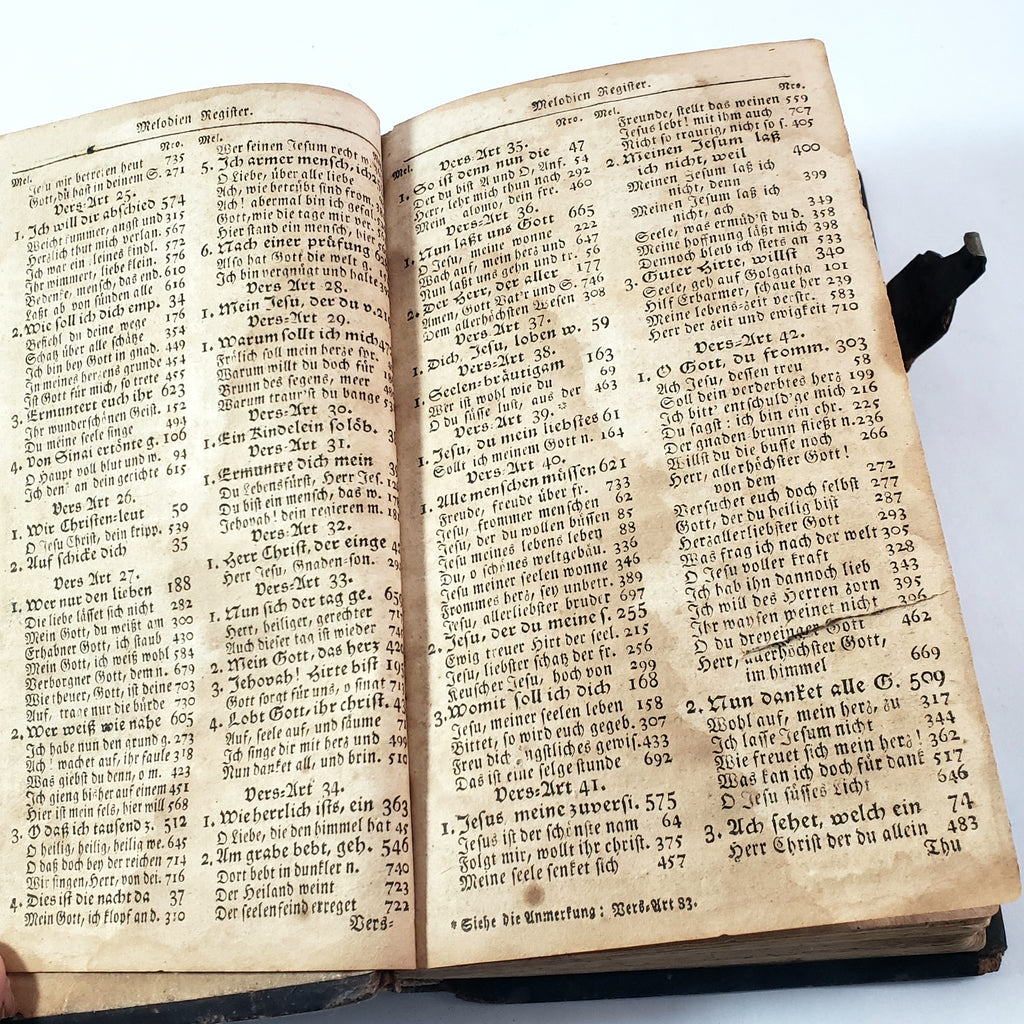 Melodien Register.
Mel. Nro.
Jesu wir betreten heut 735
Gott, du hast in deinem S. 271
Vers-Art 25.
1. Ich will dir abschied 574
Weicht kummer, angst und 315
Herzlich thut mich verlan. 567
Ich war ein kleines kindl. 572
Ich wimmert, liebe klein. 576
Bedenke, mensch, das end. 610
Laßt ab von sünden alle 616
2. Wie soll ich dich emp. 34
Befiehl du deine wege 176
Schatz über alle schätze 354
Ich bin bey Gott in gnad. 449
In meines herzens grunde 454
Ist Gott für mich, so trete 455
3. Ermuntert euch ihr 623
Ihr wunderschönen Geist. 152
Du meine seele singe 494
4. Von Sinai ertönte g. 106
O Haupt voll blut und w. 94
Ich denk an dein gerichte 615
Vers Art 26.
1. Wir Christen-leut 50
O Jesu Christ, dein kripp. 539
2. Auf schicke dich 35
Vers Art 27.
1. Wer nur den lieben 188
Die liebe läßet sich nicht 282
Mein Gott, du weißt am 300
Erhabner Gott, ich staub 430
Mein Gott, ich weiß wohl 584
Verborgner Gott, dem n. 679
Wie theuer, Gott, ist deine 703
Auf, trage nur die bürde 730
2. Wer weiß wie nahe 605
Ich habe nun den grund g. 273
Ach! wachet auf, ihr faule 318
Was giebst du denn, o m. 423
Ich gieng bisher auf einem 451
Hier ist mein fels, hier will 568
3. O daß ich tausend z. 512
O heilig, heilig, heilig we. 645
O daß doch bey der reichen 714
Wir singen, Herr, von dei. 716
4. Dies ist die nacht da 37
Mein Gott, ich klopf an d. 310
Mel.
Wer seinen Jesum recht
5. Ich armer mensch, ich
O Liebe, über alle liebe
Ach, wie betrübt sind from.
Ach! abermal bin ich gefal.
Gott, wie die tage mir
Hier stand ein mensch, hier
6. Nach einer prüfung
Also hat Gott die welt g.
Ich bin vergnügt und halte
Vers Art 28.
1. Mein Jesu, der du v.
Vers-Art 29.
1. Warum sollt ich mich
Frölich soll mein herze spr.
Warum willt du doch für
Brunn des segens, meer
Warum traur'st du bange
Vers-Art 30.
1. Ein Kindelein so löb.
Vers-Art 31.
1. Ermuntre dich mein
Du Lebensfürst, Herr Jes.
Du bist ein mensch, das w.
Jehovah! dein regieren m.
Vers-Art 32.
1. Herr Christ, der einge
Herr Jesu, Gnaden-son.
Vers-Art 33.
1. Nun sich der tag ge.
Herr, heiliger, gerechter
Auch dieser tag ist wieder
2. Mein Gott, das herz
3. Jehovah! Hirte bist
Gott sorgt für uns, o singt
4. Lobt Gott, ihr christ.
Auf, seele auf, und säume
Ich singe dir mit herz und
Nun danket all, und brin. 510
Vers-Art 34.
1. Wie herrlich ists, ein 363
O Liebe, die den himmel hat
2. Am grabe bebt, geh. 546
Dort bebt in dunkler n. 740
Der Heiland weint 723
Der seelenfeind erreget 722
Vers-
Melodien Register.
Mel. Nro.
Vers-Art 35.
1. So ist denn nun die 47
Der du bist A und O, Anf. 54
Herr, lehr mich thun nach 292
Mein, alomo, dein fre. 460
Vers-Art 36.
1. Nun laßt uns Gott 665
O Jesu, meine wonne 222
Wach auf, mein herz und 647
Nun laßt uns gehn und tr. 56
2. Der Herr, der aller 177
Amen, Gott Vat'r und S. 746
Dem allerhöchsten Wesen 308
Vers-Art 37.
1. Dich, Jesu, loben w. 59
Vers-Art 38.
1. Seelen-bräutigam 163
Wer ist wohl wie du 69
O du süsse lust, aus der 463
Vers-Art 39.*
1. Jesu, du mein liebstes 61
Sollt ich meinem Gott n. 164
Vers-Art 40.
1. Alle menschen müssen 621
Freude, freude über fr. 733
Jesu, frommer menschen 62
Jesu, der du wollen büssen 85
Jesu meines lebens leben 88
Du, o schönes weltgebäu. 336
Jesu meiner seelen wonne 346
Frommes herz, sey unbetr. 389
Jesu, allerliebster bruder 697
2. Jesu, der du meine s. 255
Ewig treuer Hirt der seel. 215
Jesu, liebster schatz der fr. 256
Keuscher Jesu, hoch von 299
3. Womit soll ich dich 168
Jesu, meiner seelen leben 158
Bittet, so wird euch gegeb. 307
Freu dich ängstliches gewis. 433
Das ist eine selge stunde 692
Vers-Art 41.
1. Jesus, meine zuversi. 575
Jesus ist der schönste nam 64
Folgt mir, wollt ihr christ. 375
Meine seele senket sich 457
* Siehe die Anmerkung: Vers-Art 83.
Mel. Nro.
Freunde, stellt das weinen 559
Jesus lebt! mit ihm auch 707
Nicht so traurig, nicht so s. 405
2. Meinen Jesum laß
ich nicht, weil 400
Meinen Jesum laß ich
nicht, denn 399
Meinen Jesum laß ich
nicht, ach 349
Seele, was ermüd'st du d. 358
Meine hoffnung läßt mich 398
Dennoch bleib ich stets an 533
3. Guter Hirte, willst 340
Seele, geh auf Golgatha 101
Hilf Erbarmer, schaue her 239
Meine lebens-zeit verstr. 583
Herr der zeit und ewigkeit 710
Vers-Art 42.
1. O Gott, du fromm. 303
Ach Jesu, dessen treu 58
Soll dein verderbtes herz 199
Ich bitt' entschuld'ge mich 216
Du sagst: ich bin ein chr. 225
Der gnaden brunn fließt n. 236
Willst du die busse noch 266
Herr, allerhöchster Gott!
von dem 272
Versuchet euch doch selbst 277
Gott, der du heilig bist 287
Herzallerliebster Gott 293
Was frag ich nach der welt 305
O Jesu voller kraft 328
Ich hab ihn dannoch lieb 343
Ich will des Herren zorn 395
Ihr waysen weinet nicht 396
O du dreyeiniger Gott 462
Herr, allerhöchster Gott,
im himmel 669
2. Nun danket alle G. 509
Wohl auf, mein herz, zu 317
Ich lasse Jesum nicht 344
Wie freuet sich mein herz! 362
Was kan ich doch für dank 517
O Jesu süsses Licht 646
3. Ach sehet, welch ein 74
Herr Christ der du allein 483
Thu